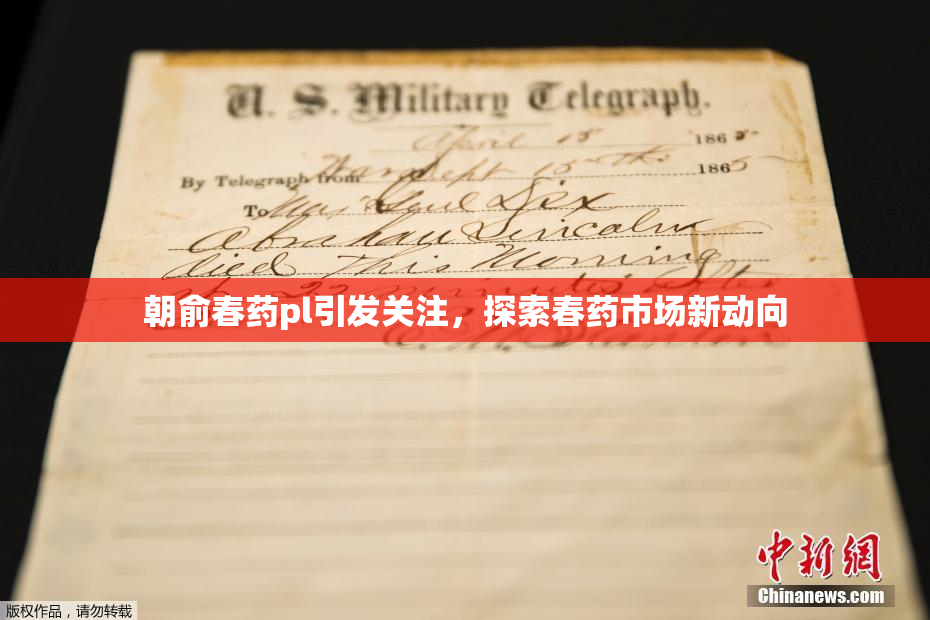 U. S. Military Telegraph.
April 15 1865
By Telegraph from War Dept 15th 1865
To Maj Genl Dix
Abraham Lincoln
died This Morning
at 22 minutes after
朝俞春药pl引发关注，探索春药市场新动向
中新网
Chinanews.com
版权作品，请勿转载